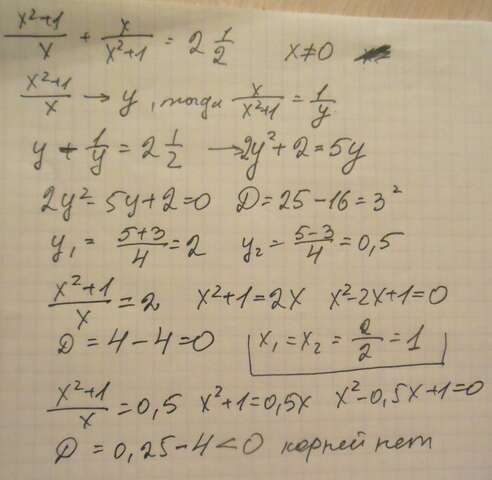 (x²+1)/x + x/(x²+1) = 2 1/2   x≠0
(x²+1)/x → y, тогда x/(x²+1) = 1/y
y + 1/y = 2 1/2 → 2y²+2=5y
2y²-5y+2=0   D=25-16=3²
y₁ = (5+3)/4 = 2   y₂ = (5-3)/4 = 0,5
(x²+1)/x = 2   x²+1=2x   x²-2x+1=0
D=4-4=0   x₁=x₂= 2/2 = 1
(x²+1)/x = 0,5   x²+1=0,5x   x²-0,5x+1=0
D=0,25-4<0 корней нет